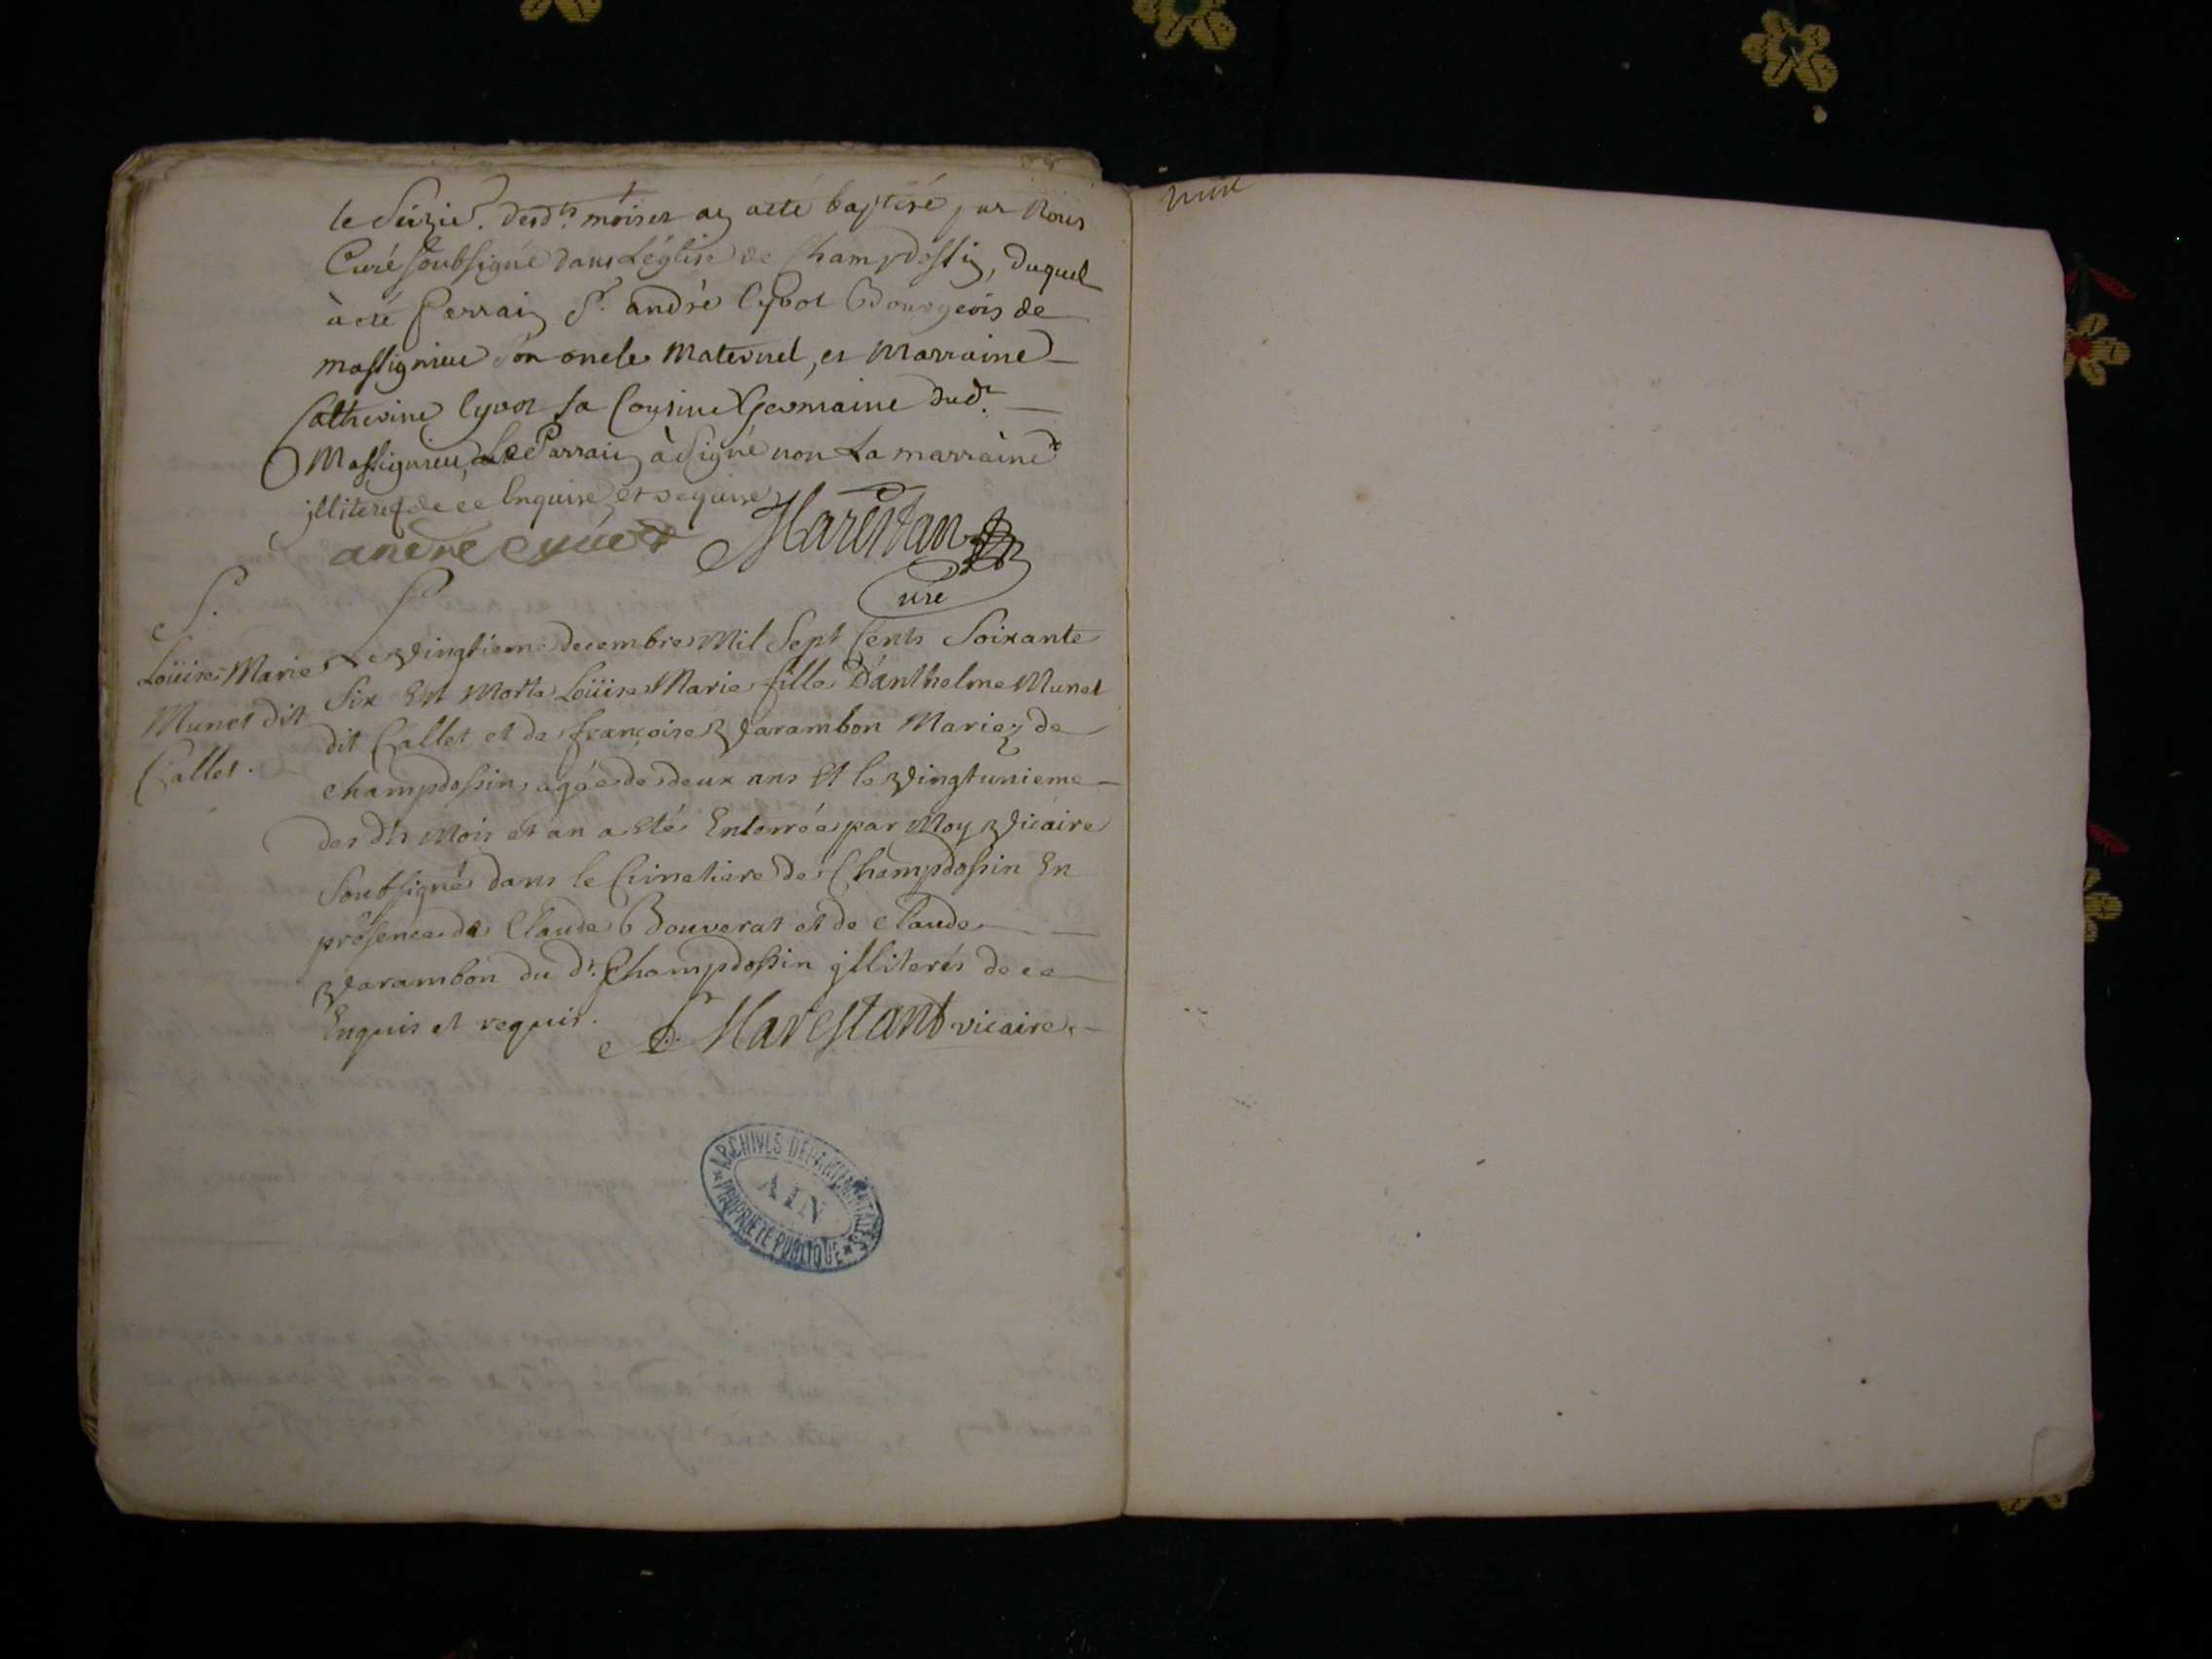 le Seizie. desd.ts mois et an a été baptisé par Nous
Curé soubsigné dans L'église de Champdossin, duquel
à eté Parrain S.r andré Cyvot Bourgeois de
massignieu son oncle Maternel, et Marraine
Catherine Cyvot sa Cousine Germaine dud.t
Massignieu, Le Parrain à Signé non La marraine
jlliterée de ce Enquise et requise
andré cyvot Marestan
Curé
S.
Loüise Marie
Munet dit
Callet.
Le Vingtieme decembre Mil Sept Cents Soixante
Six Est Morte Loüise Marie fille D'anthelme Munet
dit Callet et de françoise Varambon Mariez de
champdossin, agée de deux ans Et le Vingtunieme
des dts Mois et an a Eté Enterrée par Moy Vicaire
Soubsigné dans le Cimetiere de Champdossin En
présence de Claude Bouverat et de Claude
Varambon du dt. Champdossin jlliterés de ce
Enquis et requis. Marestant vicaire.
ARCHIVES DEPARTEMENTALES
AIN
* PROPRIETE PUBLIQUE *